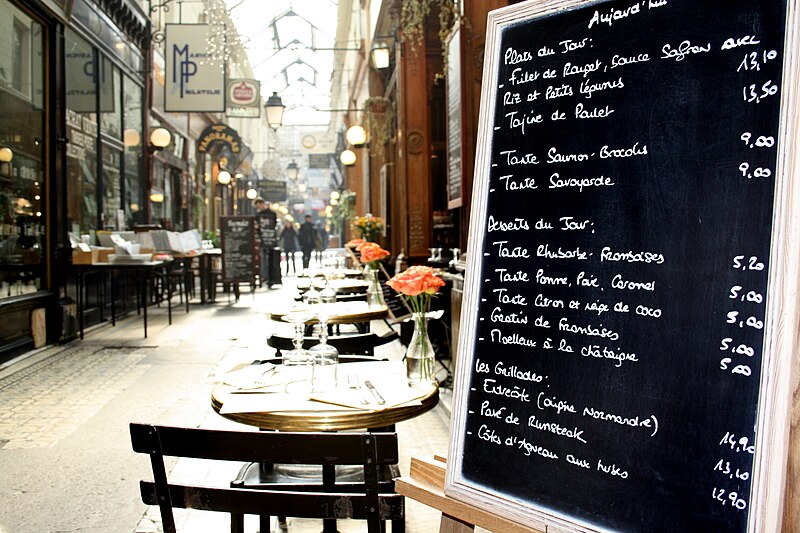 Aujourd'hui
Plats du Jour:
- Filet de Rouget, sauce Safron avec
Riz et Petits légumes 13,10
- Tajine de Poulet 13,50
- Tarte Saumon-Brocolis 9,00
- Tarte Savoyarde 9,00
Desserts du Jour:
- Tarte Rhubarbe-Framboises 5,20
- Tarte Pomme, Poire, Caramel 5,00
- Tarte Citron et neige de coco 5,00
- Gratin de Framboises 5,00
- Moelleux à la châtaigne 5,00
Les Grillades:
- Entrecôte (origine Normandie) 14,90
- Pavé de Rumsteak 13,10
- Côtes d'Agneau aux herbes 12,90
MP
PHILATELIE